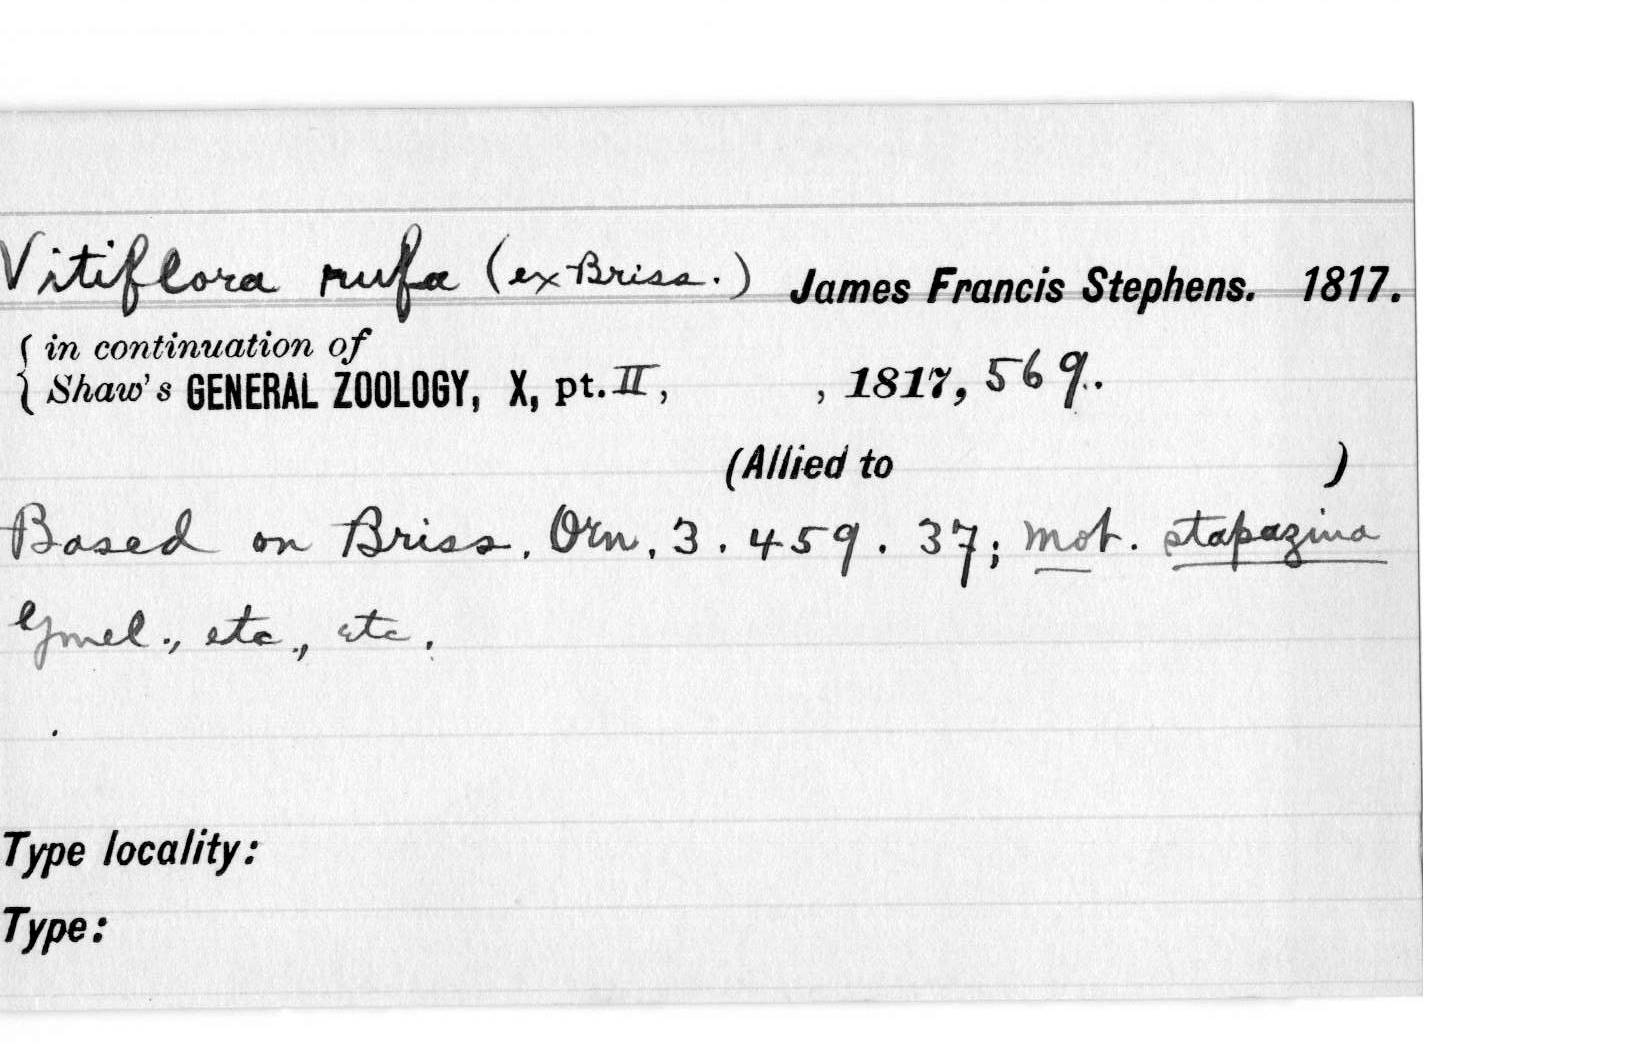 Vitiflora rufa (ex Briss.) James Francis Stephens. 1817.
{ in continuation of
Shaw's GENERAL ZOOLOGY, X, pt. II, , 1817, 569.
(Allied to )
Based on Briss. Orn. 3. 459. 37; Mot. stapazina
Gmel., etc., etc.
Type locality:
Type: